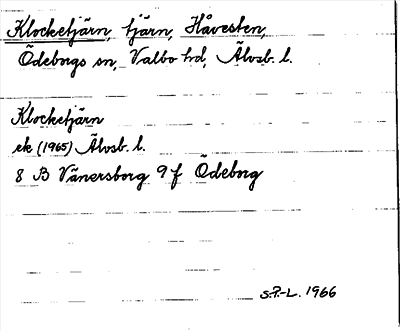 Klocketjärn, tjärn, Håvesten,
Ödeborgs sn, Valbo hd, Älvsb. l.
Klocketjärn
ek (1965) Älvsb. l.
8 B Vänersborg 9 f Ödeborg
S.P.-L. 1966